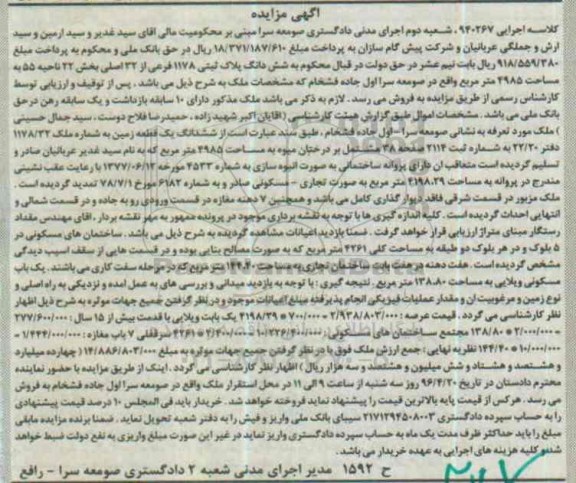 آگهی مزایده
کلاسه اجرایی ۹۴۰۲۶۷ ، شعبه دوم اجرای مدنی دادگستری صومعه سرا مبنی بر محکومیت مالی آقای سید غدیر و سید ارمین و سید
ارش و جملگی عربانیان و شرکت پیش گام سازان به پرداخت مبلغ ۱۸/۳۷۱/۱۸۷/۶۱۰ ریال در حق بانک ملی و محکوم به پرداخت مبلغ
۹۱۸/۵۵۹/۳۸۰ ریال بابت نیم عشر در حق دولت در قبال محکوم به شش دانگ پلاک ثبتی ۱۱۷۸ فرعی از ۳۲ اصلی بخش ۲۲ ناحیه ۵۵ به
مساحت ۴۹۸۵ متر مربع واقع در صومعه سرا اول جاده فشخام که مشخصات ملک به شرح ذیل می باشد . پس از توقیف و ارزیابی توسط
کارشناس رسمی از طریق مزایده به فروش می رسد . لازم به ذکر می باشد ملک مذکور دارای ۱۰ سابقه بازداشت و یک سابقه رهن در حق
بانک ملی می باشد . مشخصات اموال طبق گزارش هیئت کارشناسی (اقایان اکبر شهیدی زاده ، حمیدرضا فلاح دوست ، سید جمال حسینی
) ملک مورد تعرفه به نشانی صومعه سرا - اول جاده فشخام ، طبق سند عبارت است از ششدانگ یک قطعه زمین به شماره ملک ۱۱۷۸/۳۲
دفتر ۲۲/۲۰ به شماره ثبت ۲۱۱۴ صفحه ۳۸ مشتمل بر درختان میوه به مساحت ۴۹۸۵ متر مربع که به نام سید غدیر عربانیان صادر و
تسلیم گردیده است متعاقب ان دارای پروانه ساختمانی به صورت انبوه سازی به شماره ۴۵۳۳ مورخه ۱۳۷۷/۰۶/۱۲ با رعایت عقب نشینی
مندرج در پروانه به مساحت ۴۱۹۸،۳۹ متر مربع به صورت تجاری - مسکونی صادر و به شماره ۶۱۸۲ مورخ ۷۸/۷/۱ تمدید گردیده است .
ملک مزبور در قسمت شرقی فاقد دیوار گذاری کامل می باشد و همچنین ۷ دهنه مغازه در قسمت ورودی رو به جاده و در قسمت شمالی و
انتهایی احداث گردیده است . کلیه اندازه گیری ها با توجه به نقشه برداری موجود در پرونده ممهور به مهر نقشه بردار ، اقای مهندس مقداد
رستگار مبنای متراژ ارزیابی قرار خواهد گرفت . ضمنا بازدید اعیانات مشاهده گردیده به شرح ذیل می باشد . ساختمان های مسکونی در
۵ بلوک و در هر بلوک دو طبقه به مساحت کلی ۴۲۶۱ متر مربع که به صورت مصالح بنایی بوده و در قسمت هایی از سقف اسیب دیدگی
مشخص گردیده است . هفت دهنه در هفت باب ساختمان تجاری به مساحت ۱۴۴،۴۰ متر مربع که در مرحله سفت کاری می باشند . یک باب
مسکونی ویلایی به مساحت ۱۳۸،۸۰ متر مربع . نتیجه گیری : با توجه به بازدید میدانی و بررسی های به عمل امده و نزدیکی به راه اصلی و
نوع زمین و مرغوبیت ان و مقدار عملیات فیزیکی انجام پذیرفته مبلغ اعیانات موجود و در نظر گرفتن جمیع جهات موثره به شرح ذیل اظهار
نظر کارشناسی می گردد . قیمت عرصه : ۲/۹۳۸/۸۰۳/۰۰۰=۷۰۰/۰۰۰* ۴۱۹۸/۳۹ یک بابت ویلایی با قدمت بیش از ۱۵ سال : ۲۷۷/۶۰۰/۰۰۰
=۲/۰۰۰/۰۰۰* ۱۳۸/۸۰ مجتمع ساختمان های مسکونی ۱۰/۲۲۶/۴۰۰/۰۰۰=۲/۴۰۰/۰۰۰* ۴۲۶۱ سرقفلی ۷ باب مغازه : ۱/۴۴۴/۰۰۰/۰۰۰=
۱۰/۰۰۰/۰۰۰* ۱۴۴/۴۰ نظریه نهایی : جمع ارزش ملک فوق با در نظر گرفتن جمیع جهات موثره به مبلغ ۱۴/۸۸۶/۸۰۳/۰۰۰ (چهارده میلیارد
و هشتصد و هشتاد و شش میلیون و هشتصد و سه هزار ریال ) اظهار نظر کارشناسی می گردد . اینک از طریق مزایده با حضور نماینده
محترم دادستان در تاریخ ۹۶/۴/۲۰ روز سه شنبه از ساعت ۹ الی ۱۱ در محل استقرار ملک واقع در صومعه سرا اول جاده فشخام به فروش
می رسد . هر کس از قیمت پایه بالاترین قیمت را پیشنهاد نماید فروخته خواهد شد . خریدار باید فی المجلس ۱۰ درصد قیمت پیشنهادی
را به حساب سپرده دادگستری ۲۱۷۱۲۹۴۵۰۸۰۰۳ سیبای بانک ملی واریز و فیش را به دفتر شعبه تحویل نماید . ضمنا برنده مزایده مابقی
مبلغ را باید حداکثر ظرف مدت یک ماه به حساب سپرده دادگستری واریز نماید در غیر این صورت مبلغ واریزی به نفع دولت ضبط خواهد
شد و کلیه هزینه های اجرایی به عهده خریدار می باشد .
ح ۱۵۹۲ مدیر اجرای مدنی شعبه ۲ دادگستری صومعه سرا - رافع